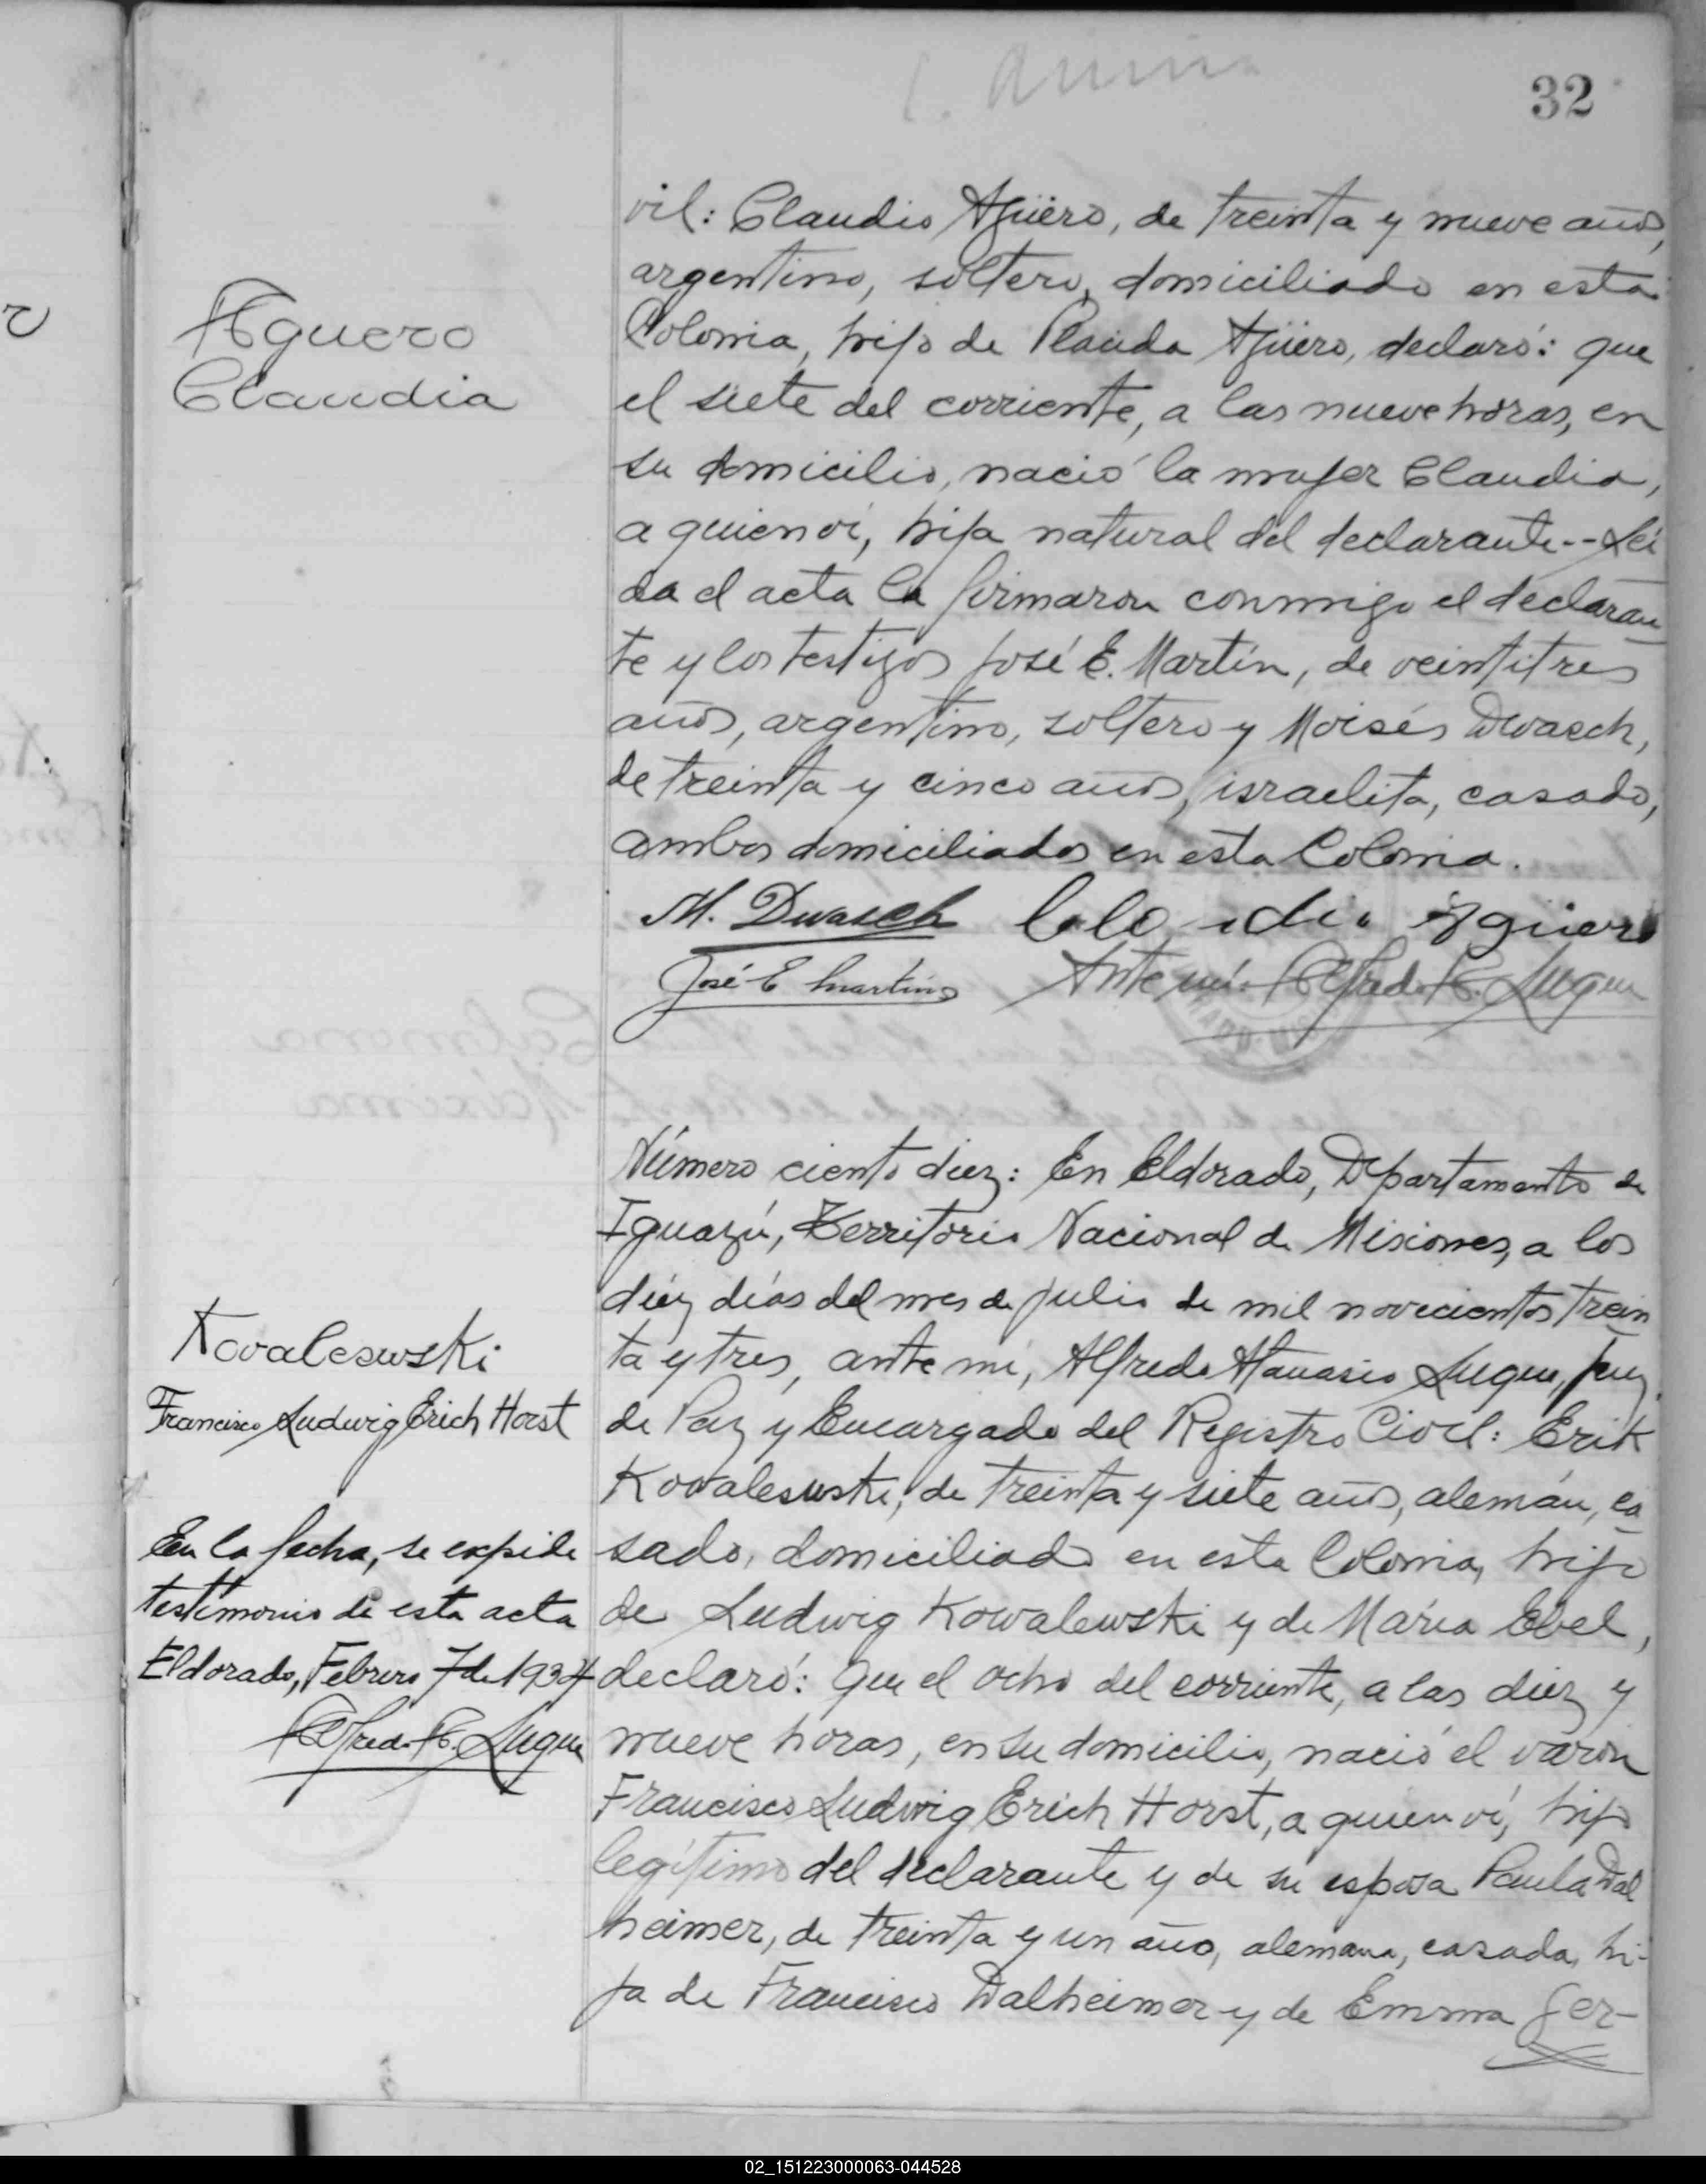 32
vil: Claudio Agüero, de treinta y nueve años,
argentino, soltero, domiciliado en esta
Colonia, hijo de Placida Agüero, declaró: que
el siete del corriente, a las nueve horas, en
su domicilio, nació la mujer Claudia,
a quien ví, hija natural del declarante.-- Leí
da el acta la firmaron conmigo el declaran
te y los testigos José E. Martín, de veintitres
años, argentino, soltero y Moisés Dwasch,
de treinta y cinco años, israelita, casado,
ambos domiciliados en esta Colonia.
Aguero
Claudia
M. Dwasch Claudio Agüero
José E Martins Ante mí: Alfredo A. Luque
Número ciento diez: En Eldorado, Departamento de
Iguazú, Territorio Nacional de Misiones, a los
diéz días del mes de julio de mil novecientos trein
ta y tres, ante mí, Alfredo Atanasio Luque, Juez
de Paz y Encargado del Registro Civil: Erik
Kovaleswski, de treinta y siete años, alemán, ca
sado, domiciliado en esta Colonia, hijo
de Ludwig Kowalewski y de María Ebel,
declaró: Que el ocho del corriente, a las diez y
nueve horas, en su domicilio, nació el varón
Francisco Ludwig Erich Horst, a quien ví, hijo
legítimo del declarante y de su esposa Paula Dal
heimer, de treinta y un año, alemana, casada, hi-
ja de Francisco Dalheimer y de Emma Ger-
Kovaleswski
Francisco Ludwig Erich Horst
En la fecha, se expide
testimonio de esta acta
Eldorado, Febrero 7 de 1934
Alfredo A. Luque
02_151223000063-044528